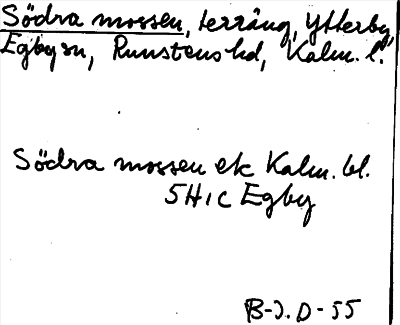 Södra mossen, terräng, Ytterby,
Egby sn, Runstens hd, Kalm. l.
Södra mossen ek Kalm. bl.
5H1c Egby
B-J.D-55